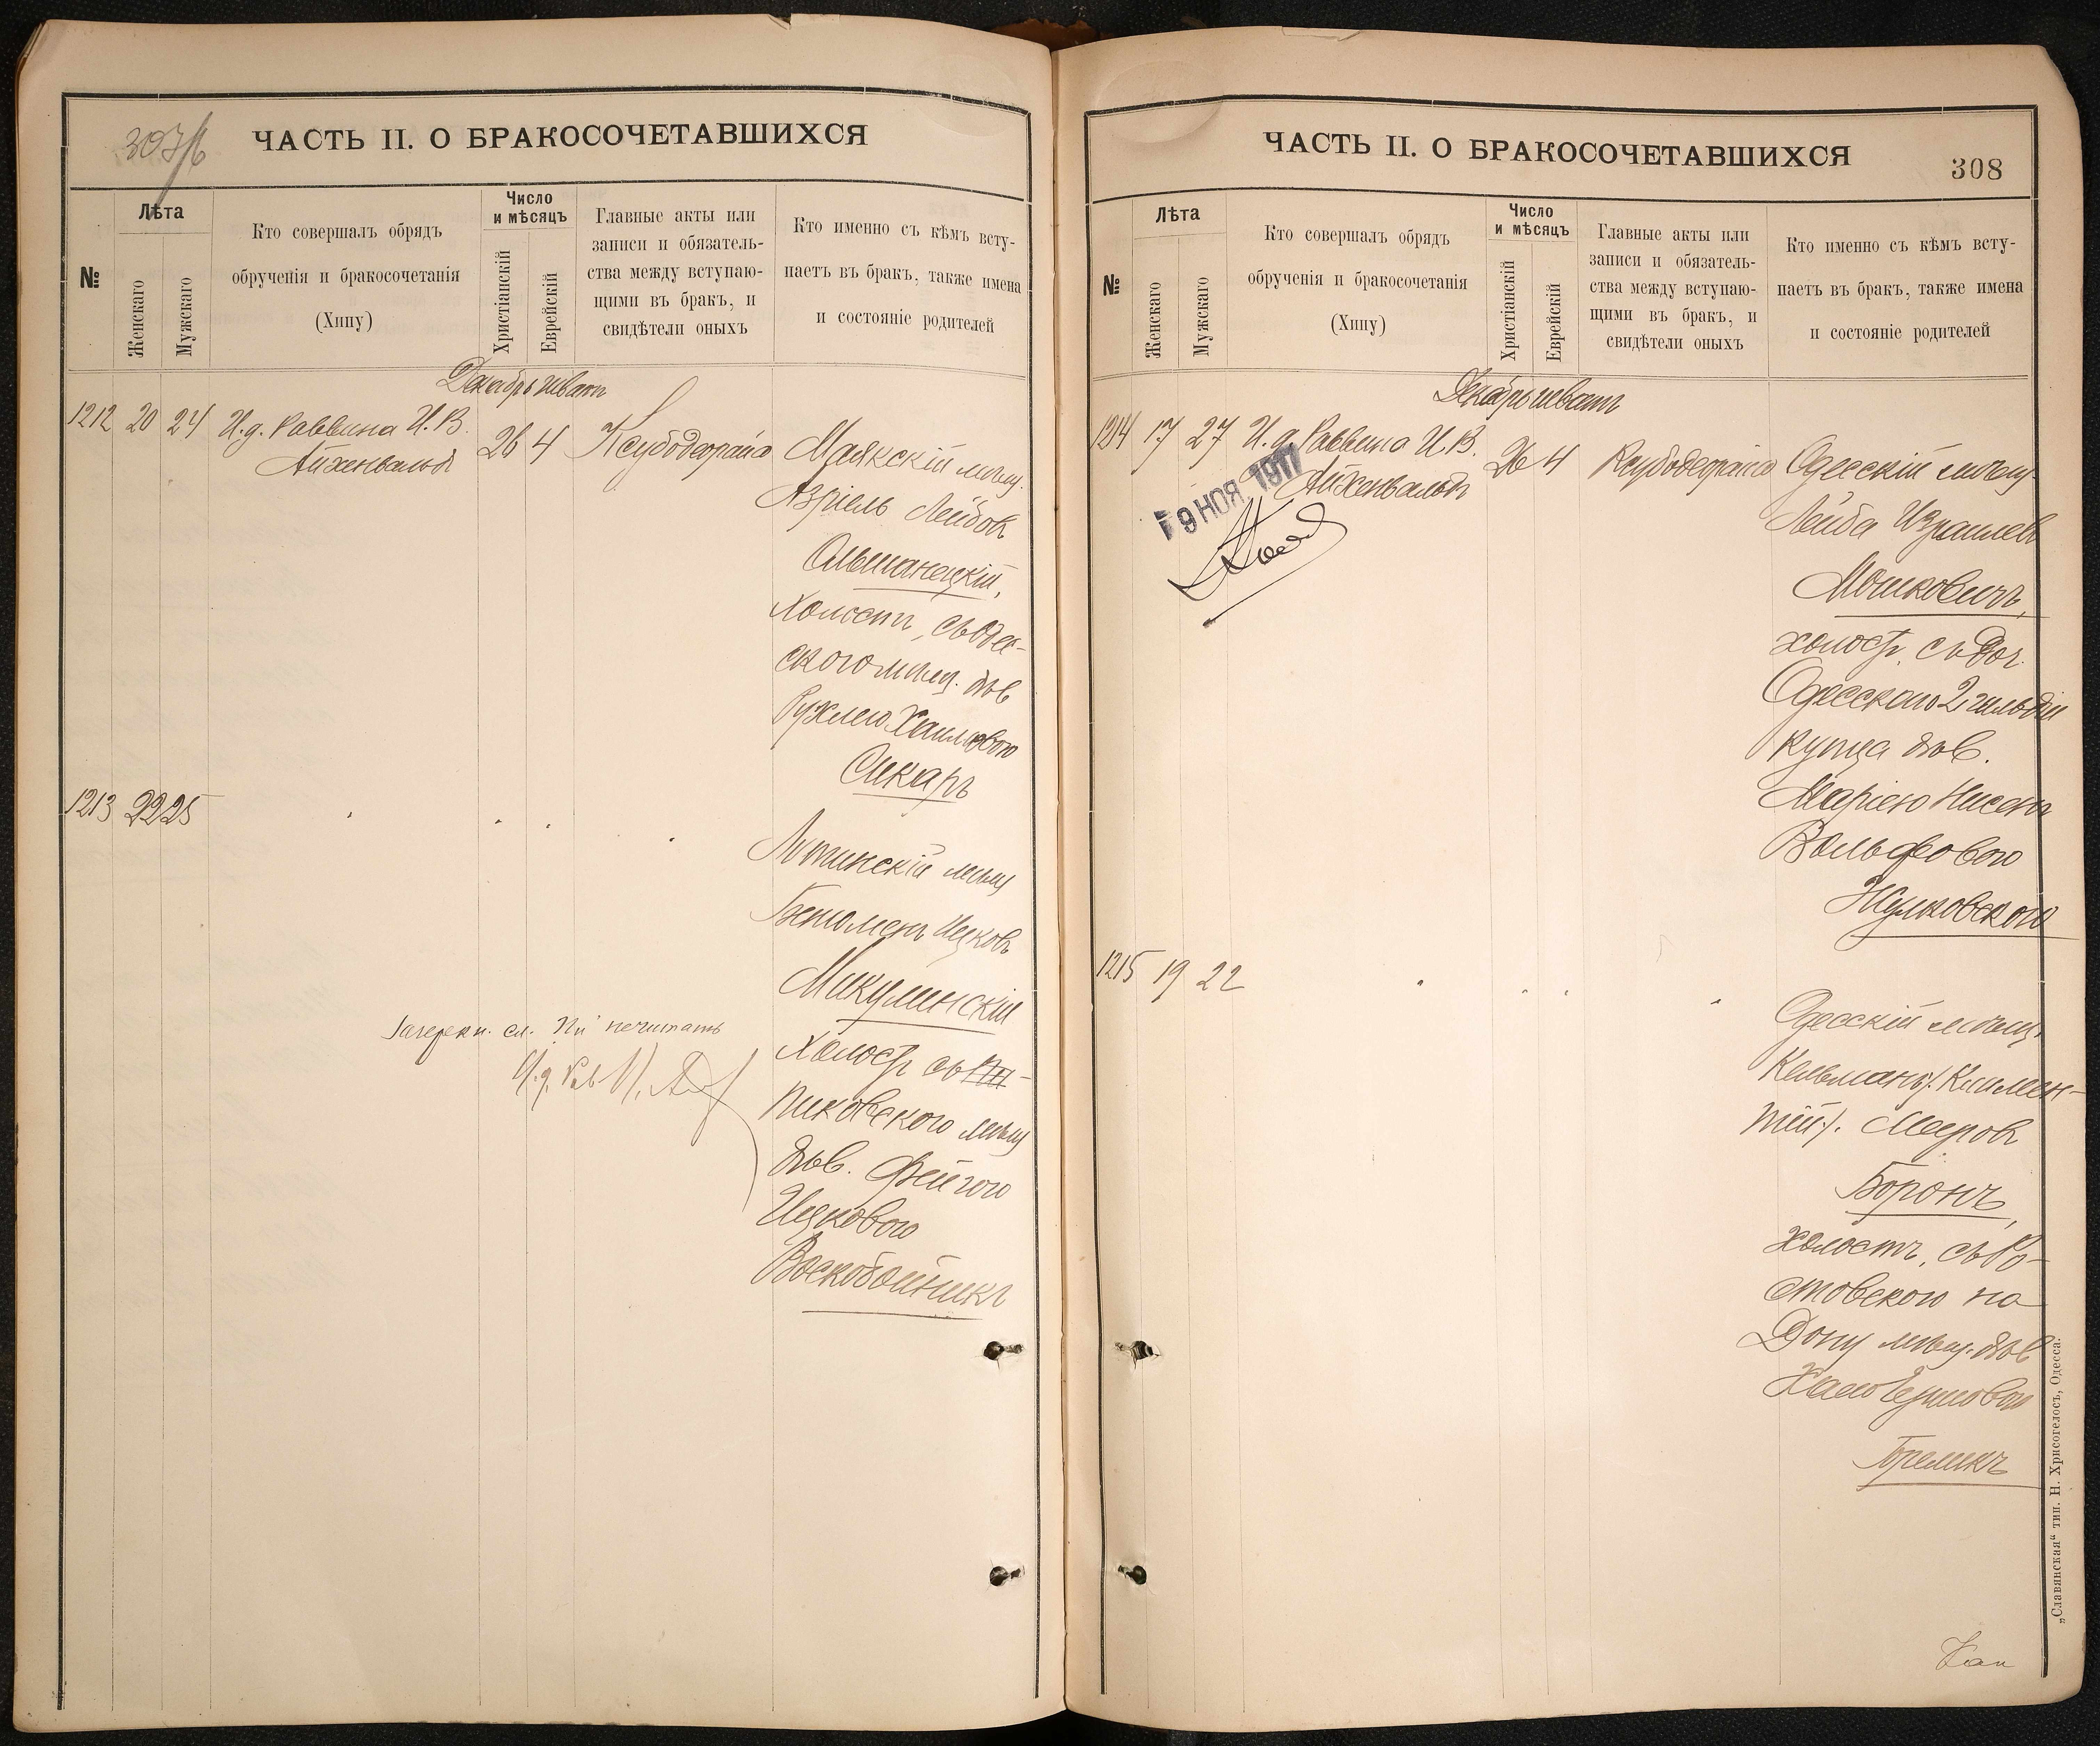 307/б
ЧАСТЬ II. О БРАКОСОЧЕТАВШИХСЯ
№
Лѣта
Женскаго
Мужскаго
Кто совершалъ обрядъ
обрученія и бракосочетанія
(Хипу)
Число
и мѣсяцъ
Христіанскій
Еврейскій
Главные акты или
записи и обязатель-
ства между вступаю-
щими въ бракъ, и
свидѣтели оныхъ
Кто именно съ кѣмъ всту-
паетъ въ бракъ, также имена
и состояніе родителей
Декабрь шватъ
1212 20 24 И.д. Раввина И.В. 26 4 Ксубодеграйса Маякскій мѣщ.
Айхенвальдъ
Азріель Лейбовъ
Ольшанецкій,
холостъ, съ Одес-
скою мѣщ. дѣв
Рухлею Хаимовою
Сикаръ
1213 22 25
Литинскій мѣщ
Беніоменъ Ицковъ
Микулинскій
холостъ съ Пи-
Пиковскою мѣщ
дѣв. Фейгою
Ицковою
Воскобойникъ
Зачеркн. сл. "Пи" нечитать
И.д. Рав
ЧАСТЬ II. О БРАКОСОЧЕТАВШИХСЯ
308
№
Лѣта
Женскаго
Мужскаго
Кто совершалъ обрядъ
обрученія и бракосочетанія
(Хипу)
Число
и мѣсяцъ
Христіанскій
Еврейскій
Главные акты или
записи и обязатель-
ства между вступаю-
щими въ бракъ, и
свидѣтели оныхъ
Кто именно съ кѣмъ всту-
паетъ въ бракъ, также имена
и состояніе родителей
Декабрь шватъ
1214 17 27 И.д. Раввина И.В. 26 4 Ксубодеграйса Одесскій мѣщ.
Айхенвальдъ
9 НОЯ. 1911
Лейба Израилевъ
Мошковичъ,
холостъ, съ доч.
Одесскаго 2 гильдіи
купца дѣв.
Маріею Нисенъ
Вольфовою
Жулковскою
1215 19 22
Одесскій мѣщ.
Кельманъ /: Климен-
тій :/. Мееровъ
Боронъ,
холостъ, съ Ро-
стовскою на
Дону мѣщ. дѣв
Ханою Гершовою
Гореликъ
„Славянская“ тип. Н. Хрисогелосъ, Одесса.